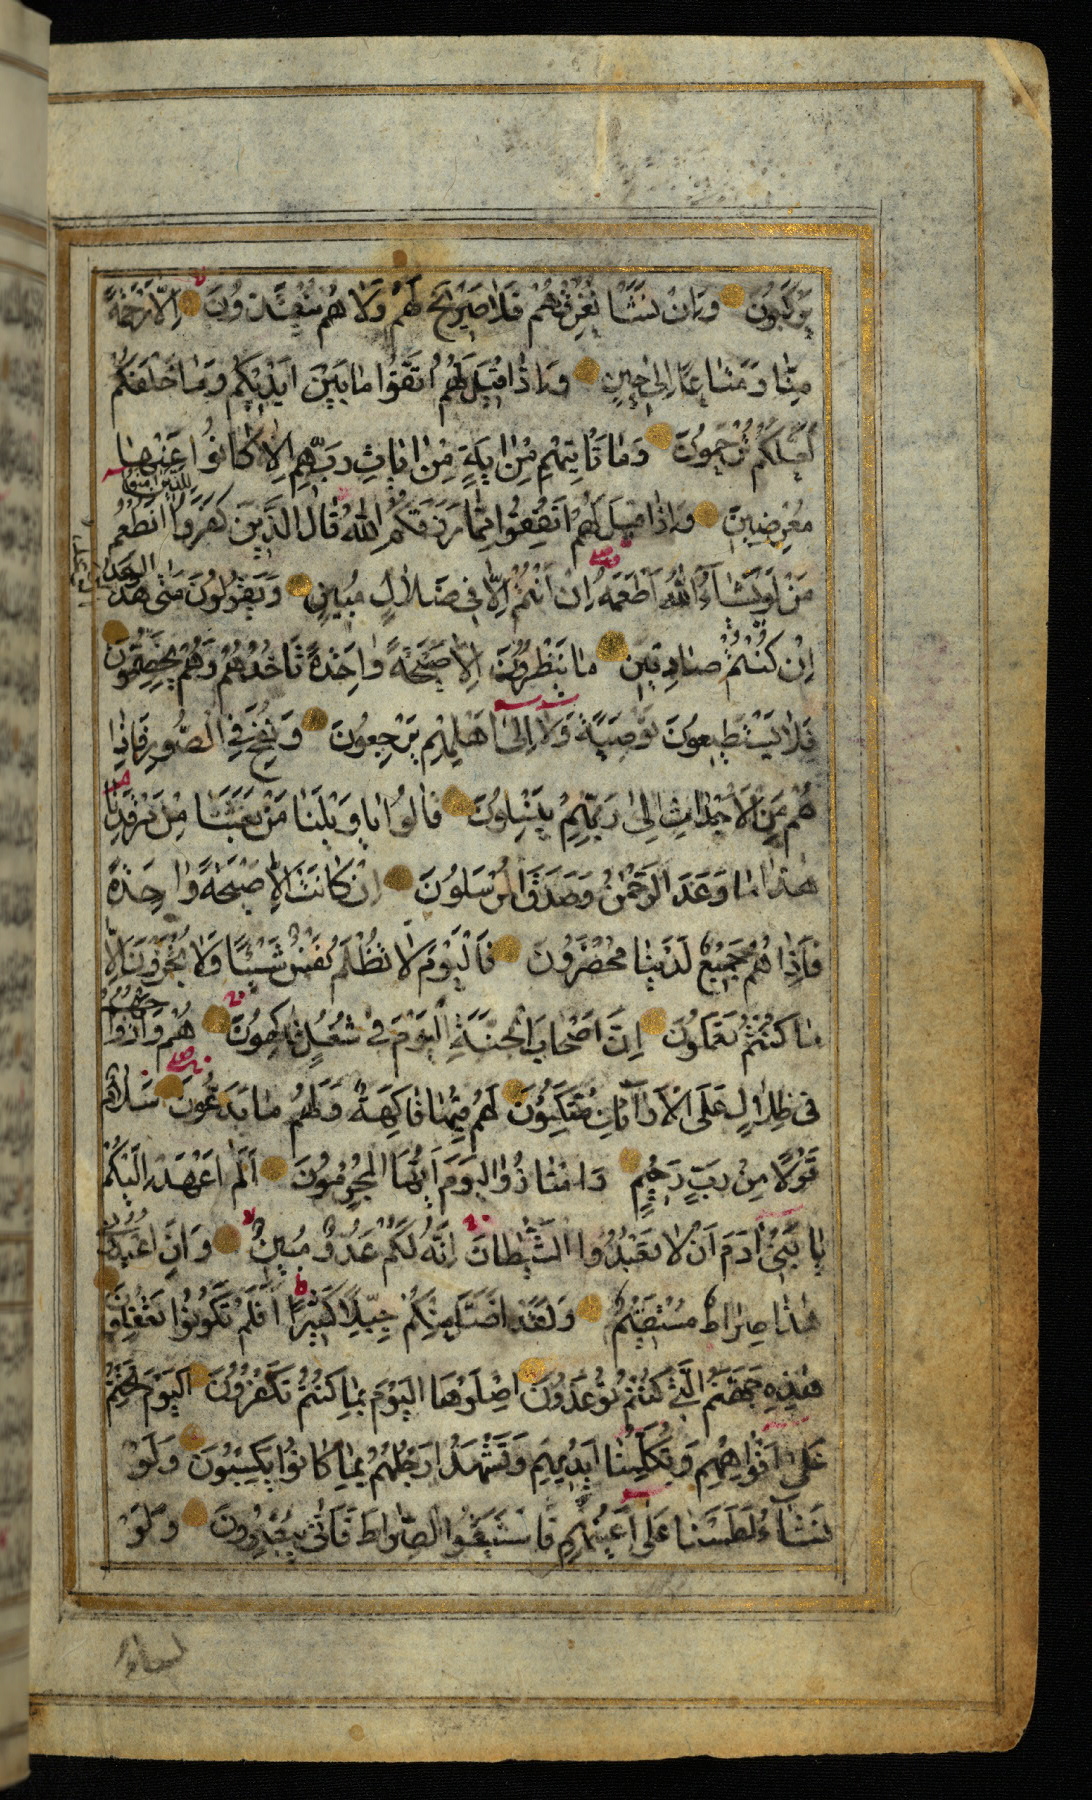 يَرْكَبُونَ وَاِنْ نَشَأْ نُغْرِقْهُمْ فَلَا صَرِيخَ لَهُمْ وَلَا هُمْ يُنْقَذُونَ اِلَّا رَحْمَةً
مِنَّا وَمَتَاعًا اِلٰى حِينٍ وَاِذَا قِيلَ لَهُمُ اتَّقُوا مَا بَيْنَ اَيْدِيكُمْ وَمَا خَلْفَكُمْ
لَعَلَّكُمْ تُرْحَمُونَ وَمَا تَأْتِيهِمْ مِنْ اٰيَةٍ مِنْ اٰيَاتِ رَبِّهِمْ اِلَّا كَانُوا عَنْهَا
مُعْرِضِينَ وَاِذَا قِيلَ لَهُمْ اَنْفِقُوا مِمَّا رَزَقَكُمُ اللّٰهُ قَالَ الَّذِينَ كَفَرُوا لِلَّذِينَ اٰمَنُوا اَنُطْعِمُ
مَنْ لَوْ يَشَاءُ اللّٰهُ اَطْعَمَهُ اِنْ اَنْتُمْ اِلَّا فِي ضَلَالٍ مُبِينٍ وَيَقُولُونَ مَتٰى هٰذَا الْوَعْدُ
اِنْ كُنْتُمْ صَادِقِينَ مَا يَنْظُرُونَ اِلَّا صَيْحَةً وَاحِدَةً تَأْخُذُهُمْ وَهُمْ يَخِصِّمُونَ
فَلَا يَسْتَطِيعُونَ تَوْصِيَةً وَلَا اِلٰى اَهْلِهِمْ يَرْجِعُونَ وَنُفِخَ فِي الصُّورِ فَاِذَا
هُمْ مِنَ الْاَجْدَاثِ اِلٰى رَبِّهِمْ يَنْسِلُونَ قَالُوا يَا وَيْلَنَا مَنْ بَعَثَنَا مِنْ مَرْقَدِنَا
هٰذَا مَا وَعَدَ الرَّحْمٰنُ وَصَدَقَ الْمُرْسَلُونَ اِنْ كَانَتْ اِلَّا صَيْحَةً وَاحِدَةً
فَاِذَا هُمْ جَمِيعٌ لَدَيْنَا مُحْضَرُونَ فَالْيَوْمَ لَا تُظْلَمُ نَفْسٌ شَيْئًا وَلَا تُجْزَوْنَ اِلَّا
مَا كُنْتُمْ تَعْمَلُونَ اِنَّ اَصْحَابَ الْجَنَّةِ الْيَوْمَ فِي شُغُلٍ فَاكِهُونَ هُمْ وَاَزْوَاجُهُمْ
فِي ظِلَالٍ عَلَى الْاَرَائِكِ مُتَّكِئُونَ لَهُمْ فِيهَا فَاكِهَةٌ وَلَهُمْ مَا يَدَّعُونَ سَلَامٌ
قَوْلًا مِنْ رَبٍّ رَحِيمٍ وَامْتَازُوا الْيَوْمَ اَيُّهَا الْمُجْرِمُونَ اَلَمْ اَعْهَدْ اِلَيْكُمْ
يَا بَنِي اٰدَمَ اَنْ لَا تَعْبُدُوا الشَّيْطَانَ اِنَّهُ لَكُمْ عَدُوٌّ مُبِينٌ وَاَنِ اعْبُدُونِي
هٰذَا صِرَاطٌ مُسْتَقِيمٌ وَلَقَدْ اَضَلَّ مِنْكُمْ جِبِلًّا كَثِيرًا اَفَلَمْ تَكُونُوا تَعْقِلُونَ
هٰذِهِ جَهَنَّمُ الَّتِي كُنْتُمْ تُوعَدُونَ اِصْلَوْهَا الْيَوْمَ بِمَا كُنْتُمْ تَكْفُرُونَ اَلْيَوْمَ نَخْتِمُ
عَلٰى اَفْوَاهِهِمْ وَتُكَلِّمُنَا اَيْدِيهِمْ وَتَشْهَدُ اَرْجُلُهُمْ بِمَا كَانُوا يَكْسِبُونَ وَلَوْ
نَشَاءُ لَطَمَسْنَا عَلٰى اَعْيُنِهِمْ فَاسْتَبَقُوا الصِّرَاطَ فَاَنّٰى يُبْصِرُونَ وَلَوْ